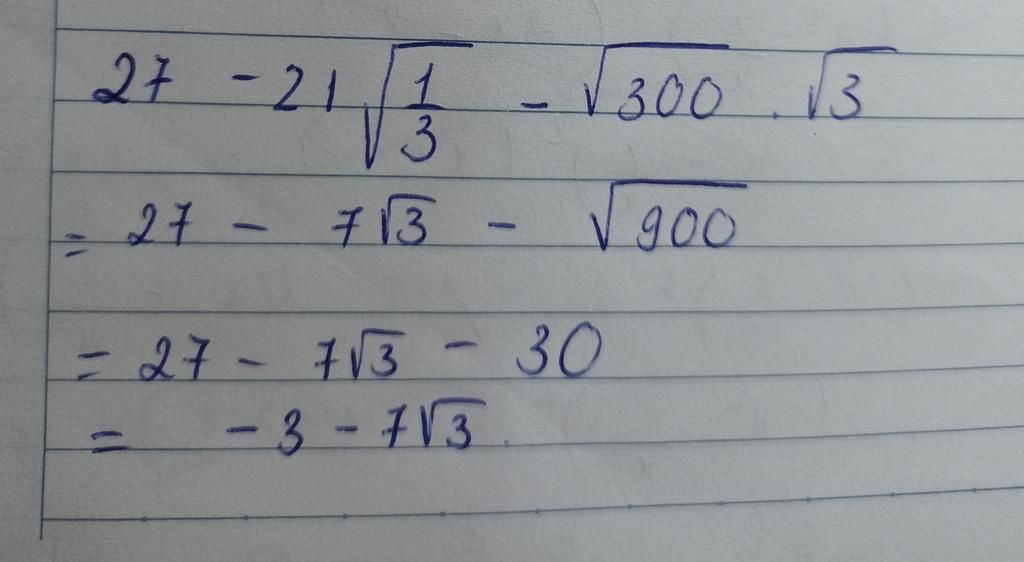 27 - 21√(1/3) - √300 . √3
= 27 - 7√3 - √900
= 27 - 7√3 - 30
= - 3 - 7√3